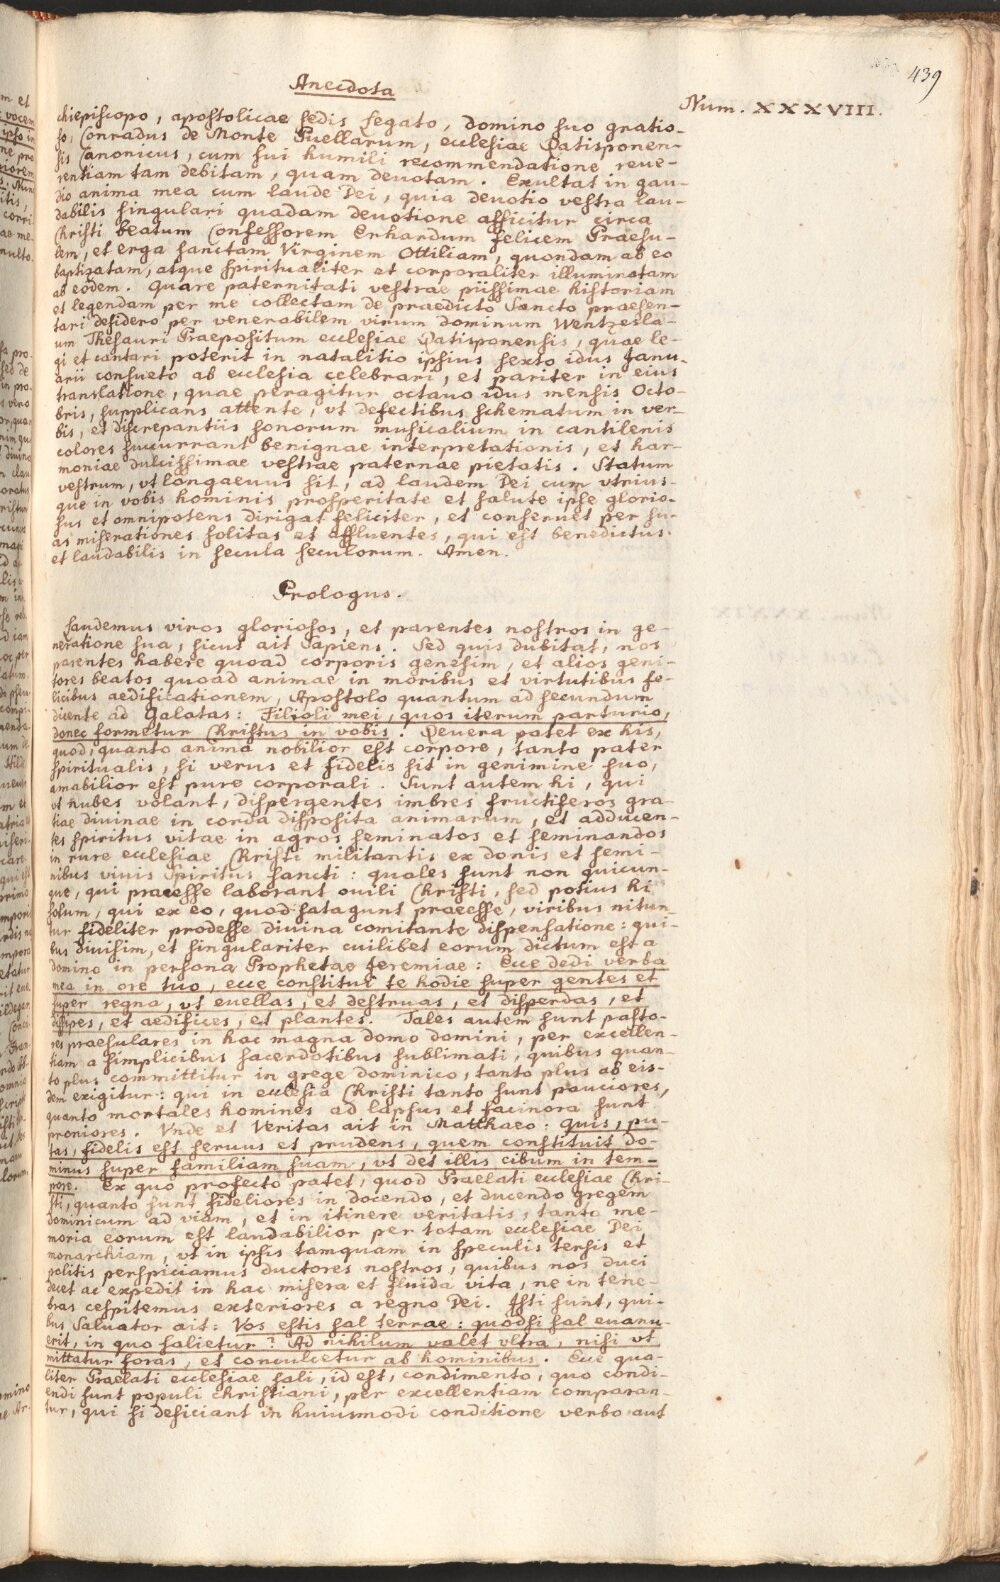 439
Anecdota
Num. XXXVIII.
chiepiscopo, apostolicae sedis Legato, domino suo gratio-
so, Conradus de Monte Puellarum, ecclesiae Ratisponen-
sis Canonicus, cum sui humili recommendatione reue-
rentiam tam debitam, quam deuotam. Exultat in gau-
dio anima mea cum laude Dei, quia deuotio vestra lau-
dabilis singulari quadam deuotione afficitur circa
Christi beatum Confessorem Erhardum felicem Praesu-
lem, et erga sanctam Virginem Ottiliam, quondam ab eo
baptizatam, atque spiritualiter et corporaliter illuminatam
ab eodem. Quare paternitati vestrae piissimae historiam
et legendam per me collectam de praedicto Sancto praesen-
tari desidero per venerabilem virum dominum Wentzesla-
um Thesauri Praepositum ecclesiae Ratisponensis, quae le-
gi et cantari poterit in natalitio ipsius sexto idus Janu-
arii consueto ab ecclesia celebrari, et pariter in eius
translatione, quae peragitur octauo idus mensis Octo-
bris, supplicans attente, vt defectibus schematum in ver-
bis, et discrepantiis sonorum musicalium in cantilenis
colores succurrant benignae interpretationis, et har-
moniae dulcissimae vestrae paternae pietatis. Statum
vestrum, vt longaeuus sit, ad laudem Dei cum vtrius-
que in vobis hominis prosperitate et salute ipse glorio-
sus et omnipotens dirigat feliciter, et conseruet per su-
as miserationes solitas et affluentes, qui est benedictus
et laudabilis in secula seculorum. Amen.
Prologus.
Laudemus viros gloriosos, et parentes nostros in ge-
neratione sua, sicut ait Sapiens. Sed quis dubitat, nos
parentes habere quoad corporis genesim, et alios geni-
tores beatos quoad animae in moribus et virtutibus fe-
licibus aedificationem, Apostolo quantum ad secundum
dicente ad Galatas: Filioli mei, quos iterum parturio,
donec formetur Christus in vobis. Reuera patet ex his,
quod, quanto anima nobilior est corpore, tanto pater
spiritualis, si verus et fidelis sit in genimine suo,
amabilior est pure corporali. Sunt autem hi, qui
vt nubes volant, dispergentes imbres fructiferos gra-
tiae diuinae in corda disposita animarum, et adducen-
tes spiritus vitae in agros seminatos et seminandos
in rure ecclesiae Christi militantis ex donis et semi-
nibus viuis Spiritus sancti: quales sunt non quicun-
que, qui praeesse laborant ouili Christi, sed potius hi
solum, qui ex eo, quod satagunt praeesse, viribus nitun-
tur fideliter prodesse diuina comitante dispensatione: qui-
bus diuisim, et singulariter cuilibet eorum dictum est a
domino in persona Prophetae Jeremiae: Ecce dedi verba
mea in ore tuo, ecce constitui te hodie super gentes et
super regna, vt euellas, et destruas, et disperdas, et
dissipes, et aedifices, et plantes. Tales autem sunt pasto-
res praesulares in hac magna domo domini, per excellen-
tiam a simplicibus sacerdotibus sublimati, quibus quan-
to plus committitur in grege dominico, tanto plus ab eis-
dem exigitur: qui in ecclesia Christi tanto sunt pauciores,
quanto mortales homines ad lapsus et facinora sunt
proniores. Vnde et Veritas ait in Matthaeo: Quis, pu-
tas, fidelis est seruus et prudens, quem constituit do-
minus super familiam suam, vt det illis cibum in tem-
pore. Ex quo profecto patet, quod Praelati ecclesiae Chri-
sti, quanto sunt fideliores in docendo, et ducendo gregem
dominicum ad viam, et in itinere veritatis, tanto me-
moria eorum est laudabilior per totam ecclesiae Dei
monarchiam, vt in ipsis tamquam in speculis tersis et
politis perspiciamus ductores nostros, quibus nos duci
decet ac expedit in hac misera et fluida vita, ne in tene-
bras cespitemus exteriores a regno Dei. Isti sunt, qui-
bus Saluator ait: Vos estis sal terrae: quodsi sal euanu-
erit, in quo salietur? Ad nihilum valet vltra, nisi vt
mittatur foras, et conculcetur ab hominibus. Ecce qua-
liter Praelati ecclesiae sali, id est, condimento, quo condi-
endi sunt populi christiani, per excellentiam comparan-
tur, qui si deficiant in huiusmodi conditione verbo aut